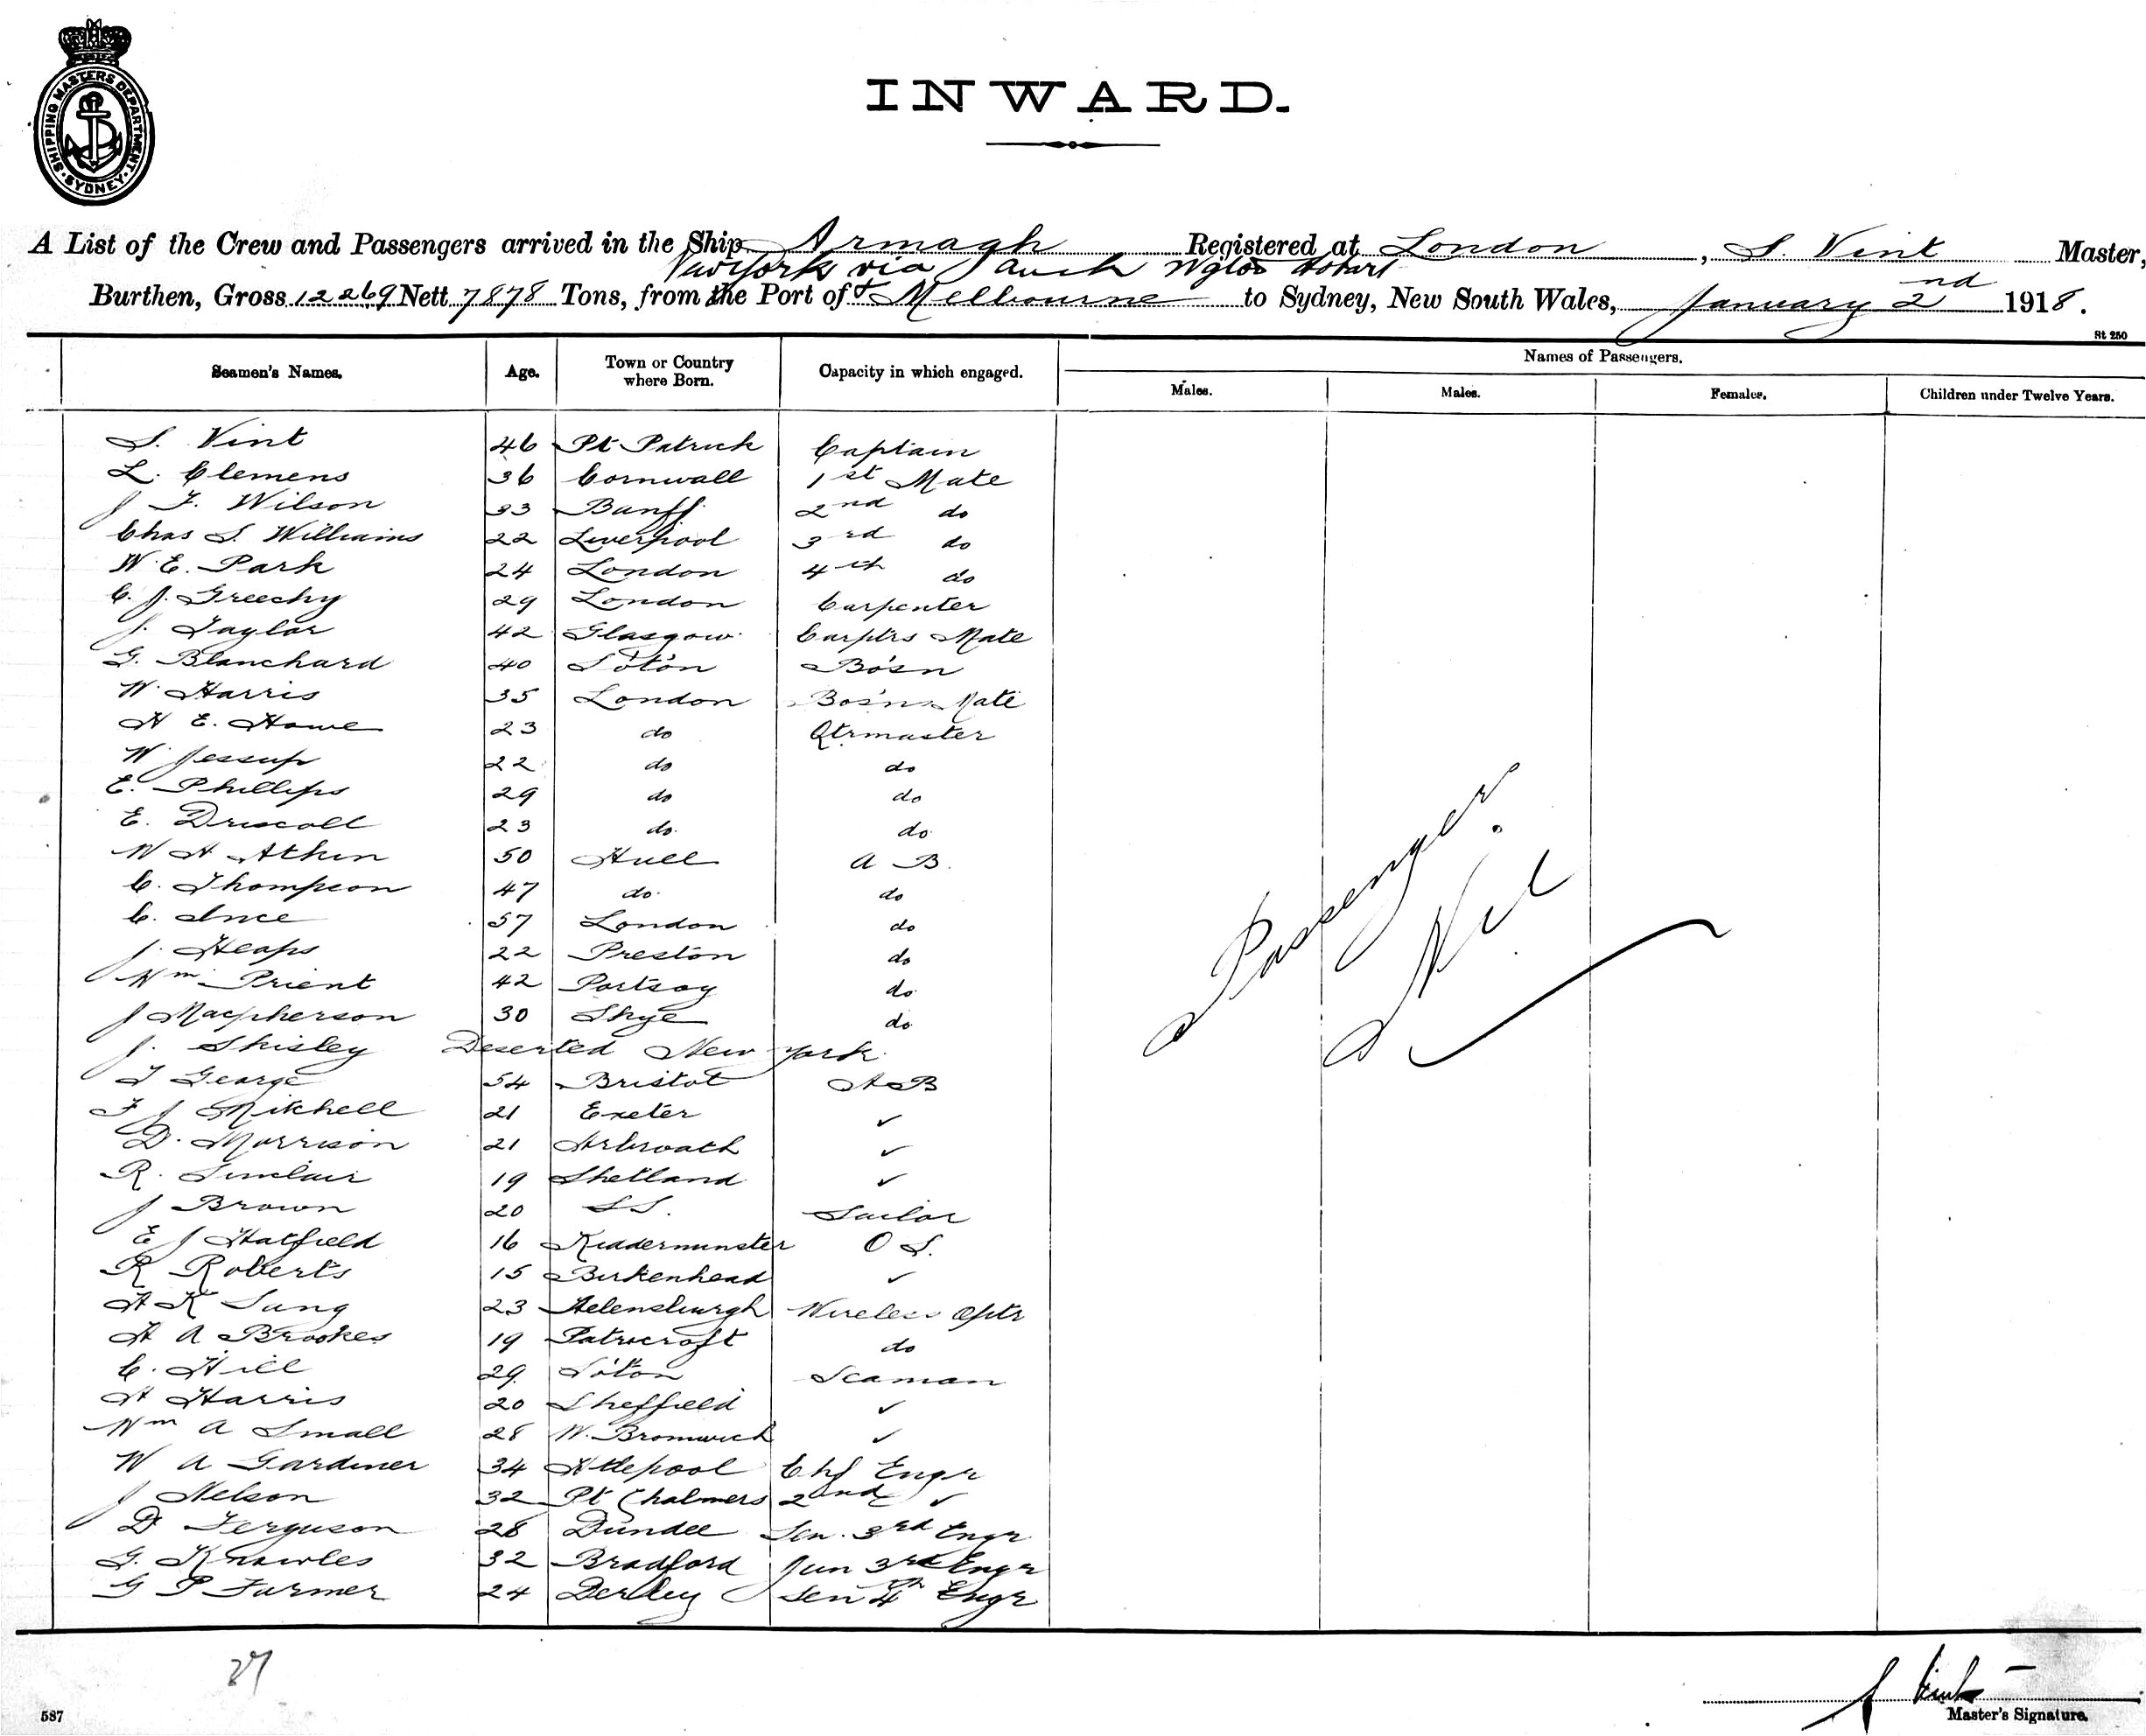 SHIPPING MASTERS DEPARTMENT. SYDNEY.
INWARD.
A List of the Crew and Passengers arrived in the Ship Armagh Registered at London, S. Vint Master,
New York via Auck Wgton Hobart
Burthen, Gross 12269 Nett 7878 Tons, from the Port of & Melbourne to Sydney, New South Wales, January 2nd 1918.
St 250
Seamen's Names. Age. Town or Country where Born. Capacity in which engaged. Names of Passengers.
Males. Males. Females. Children under Twelve Years.
S. Vint 46 Pt Patrick Captain
L. Clemens 36 Cornwall 1st Mate
J F. Wilson 33 Banff 2nd do
Chas S. Williams 22 Liverpool 3rd do
W. E. Park 24 London 4th do
C. J. Greechy 29 London Carpenter
J. Taylor 42 Glasgow Carptrs Mate
G. Blanchard 40 So'ton Bosn
W. Harris 35 London Bos'ns Mate
H E. Howe 23 do Qtrmaster
W. Jessup 22 do do
E. Phillips 29 do do
E. Driscoll 23 do. do
W H Athin 50 Hull A B.
C. Thompson 47 do. do
C. Ince 57 London do
J. Heaps 22 Preston do
Wm Prient 42 Portsoy do
J Macpherson 30 Skye do
J. Shisley Deserted New York
T George 54 Bristol AB
F J Mitchell 21 Exeter ✓
D. Morrison 21 Arbroath ✓
R. Sinclair 19 Shetland ✓
J Brown 20 S.S. Sailor
E J Hatfield 16 Kidderminster O S.
R Roberts 15 Birkenhead ✓
H K Lung 23 Helensburgh Wireless Optr
H A Brookes 19 Patricroft do
C. Hill 29 So'ton Seaman
H Harris 20 Sheffield ✓
Wm A Small 28 W. Bromwich ✓
W A Gardiner 34 Htlepool Chf Engr
J Nelson 32 Pt Chalmers 2nd ✓
D Ferguson 28 Dundee Sen. 3rd Engr
G. Knowles 32 Bradford Jun 3rd Engr
G P Farmer 24 Derby Sen 4th Engr
Passenger.
Nil
37
S Vint
Master's Signature.
587